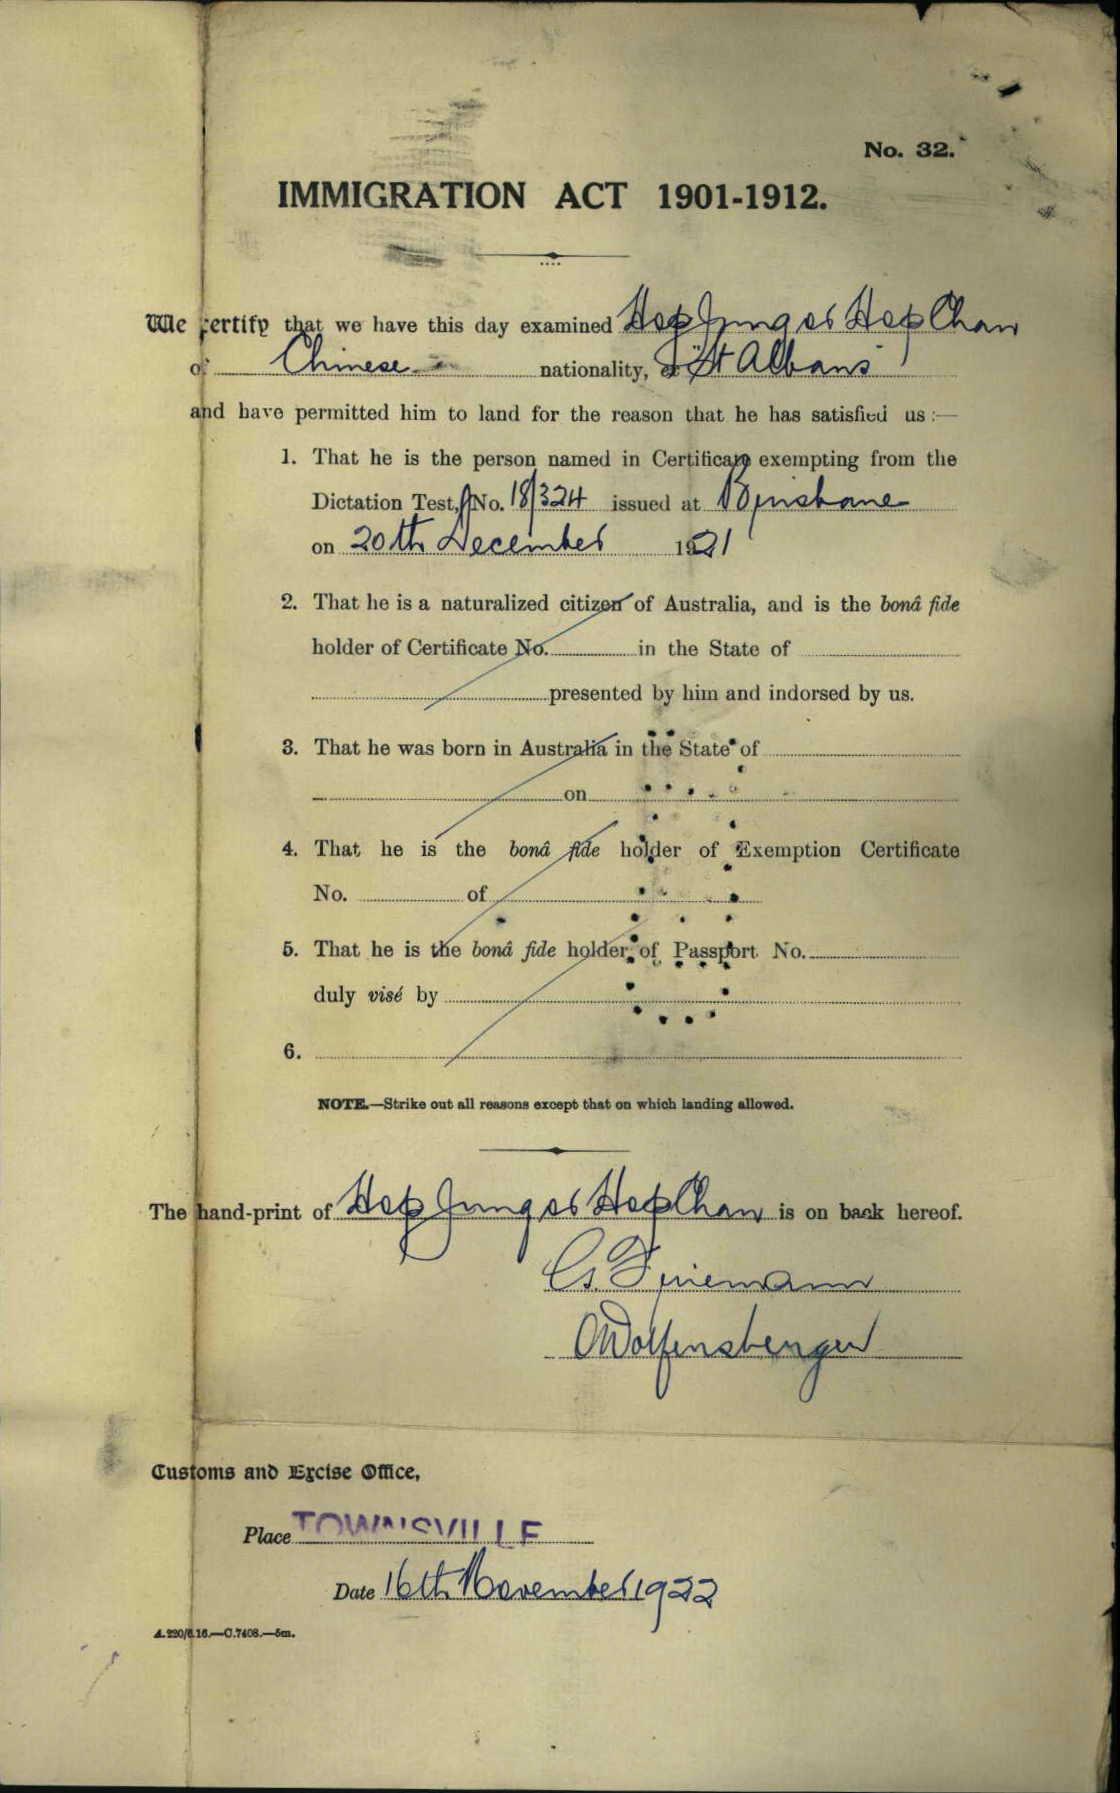 No. 32.
IMMIGRATION ACT 1901-1912.
We certify that we have this day examined Hop Jung or Hop Chan
of Chinese nationality, "St Albans"
and have permitted him to land for the reason that he has satisfied us :—
1. That he is the person named in Certificate exempting from the
Dictation Test, No. 18/324 issued at Brisbane
on 20th December 1921
2. That he is a naturalized citizen of Australia, and is the bonâ fide
holder of Certificate No. in the State of
presented by him and indorsed by us.
3. That he was born in Australia in the State of
on
4. That he is the bonâ fide holder of Exemption Certificate
No. of
5. That he is the bonâ fide holder of Passport No.
duly visé by
6.
NOTE.—Strike out all reasons except that on which landing allowed.
The hand-print of Hop Jung or Hop Chan is on back hereof.
Wolfensberger
Customs and Excise Office,
Place TOWNSVILLE
Date 16th November 1922
A.220/6.16.—C.7408.—5m.